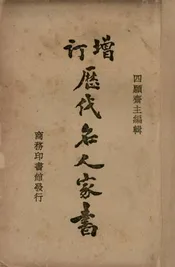 增訂
歷代名人家書
四願齋主編輯
商務印書館發行